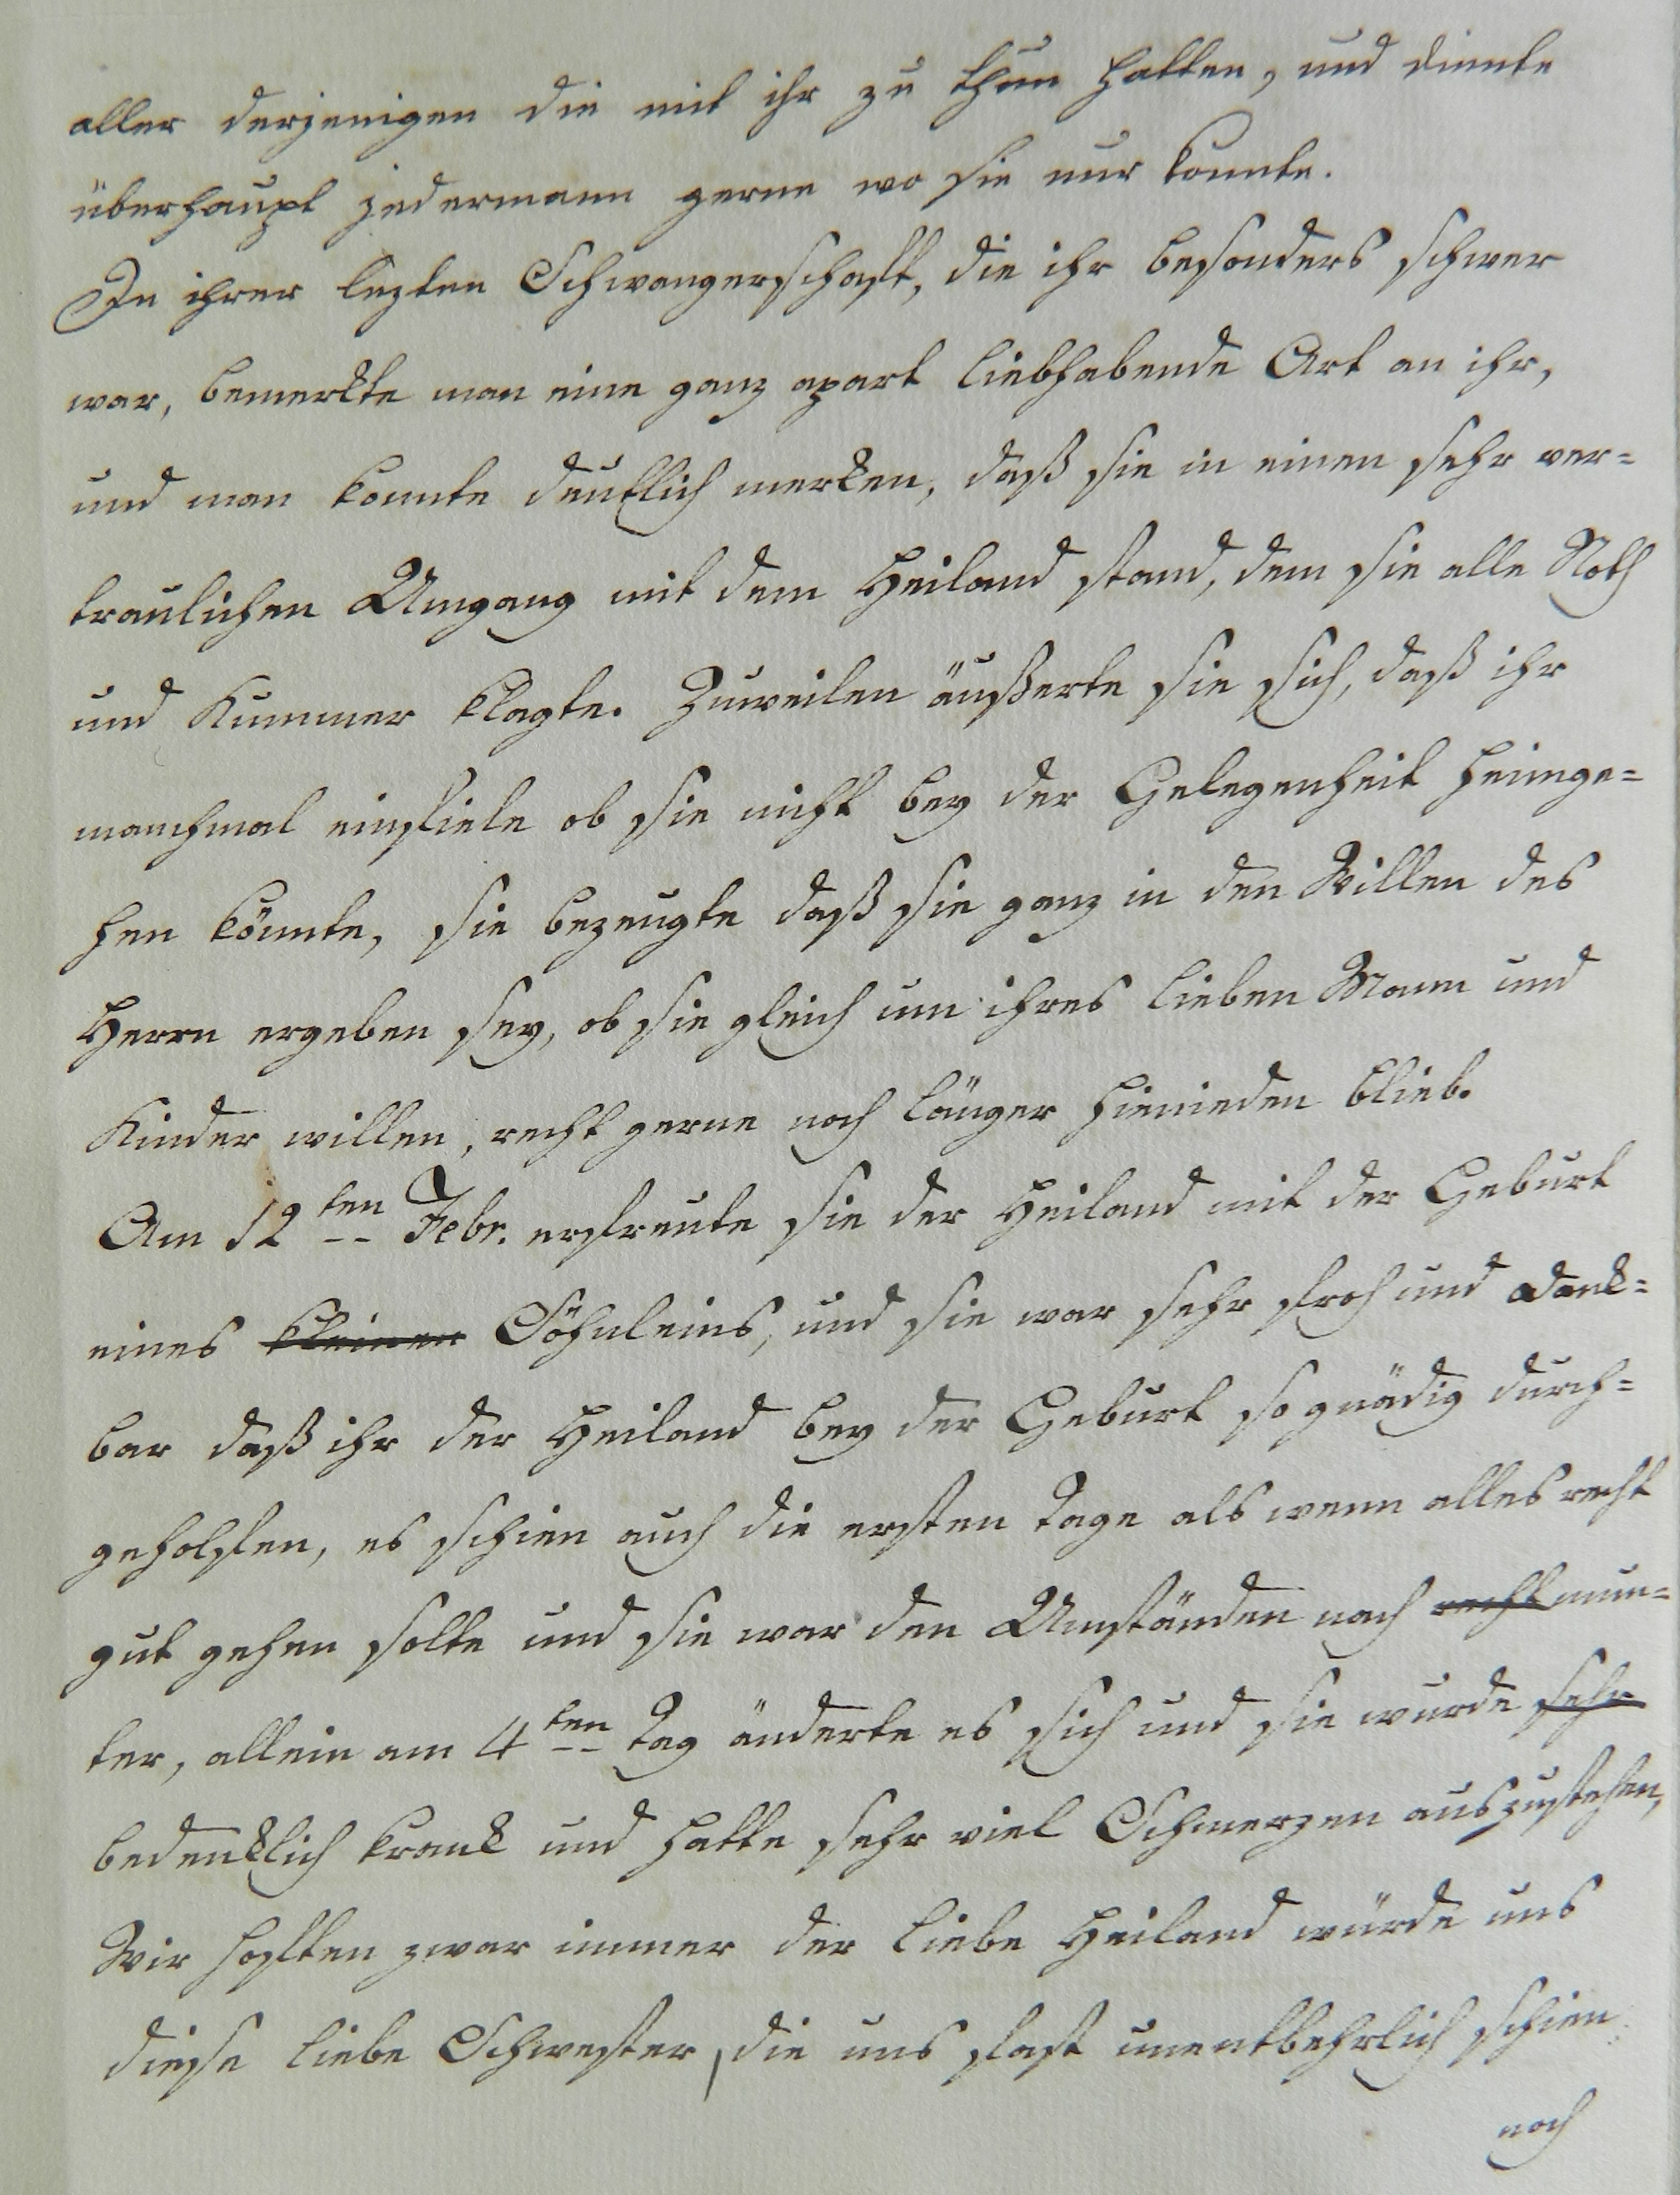 aller derjenigen die mit ihr zu thun hatten, und diente
überhaupt jedermann gerne wo sie nur konnte.
In ihrer lezten Schwangerschaft, die ihr besonders schwer
war, bemerkte man eine ganz apart liebhabende Art an ihr,
und man konnte deutlich merken, daß sie in einen sehr ver=
traulichen Umgang mit dem Heiland stand, dem sie alle Noth
und Kummer klagte. Zuweilen äußerte sie sich, daß ihr
manchmal einfiele ob sie nicht bey der Gelegenheit heimge=
hen könnte, sie bezeugte daß sie ganz in den Willen des
Herrn ergeben sey, ob sie gleich um ihres lieben Mann und
Kinder willen, recht gerne noch länger hienieden blieb.
Am 12ten Febr. erfreute sie der Heiland mit der Geburt
eines kleinen Söhnleins, und sie war sehr froh und dank=
bar daß ihr der Heiland bey der Geburt so gnädig durch=
geholfen, es schien auch die ersten Tage als wenn alles recht
gut gehen solte und sie war den Umständen nach recht mun=
ter, allein am 4ten Tag änderte es sich und sie wurde sehr
bedenklich krank und hatte sehr viel Schmerzen auszustehen,
Wir hofften zwar immer der liebe Heiland würde uns
diese liebe Schwester, die uns fast unentbehrlich schien
noch